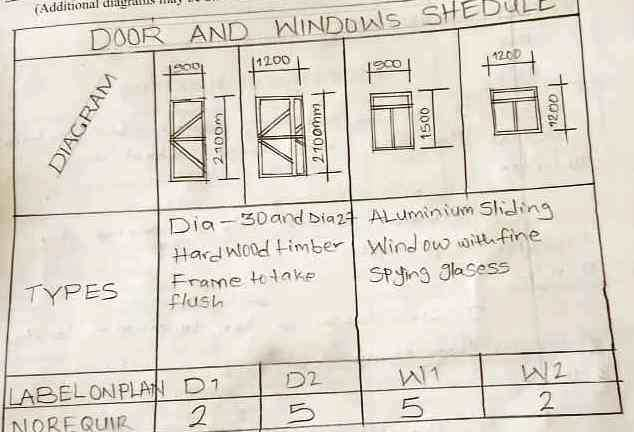 (Additional diagrams may be
DOOR AND WINDOWS SHEDULE
DIAGRAM
900
2100m
1200
2100mm
900
1500
1200
1200
TYPES
Dia-30 and Dia27
Hardwood timber
Frame to take
flush
ALuminium Sliding
Window with fine
Spying glasess
LABELONPLAN D1 D2 W1 W2
NOREQUIR 2 5 5 2